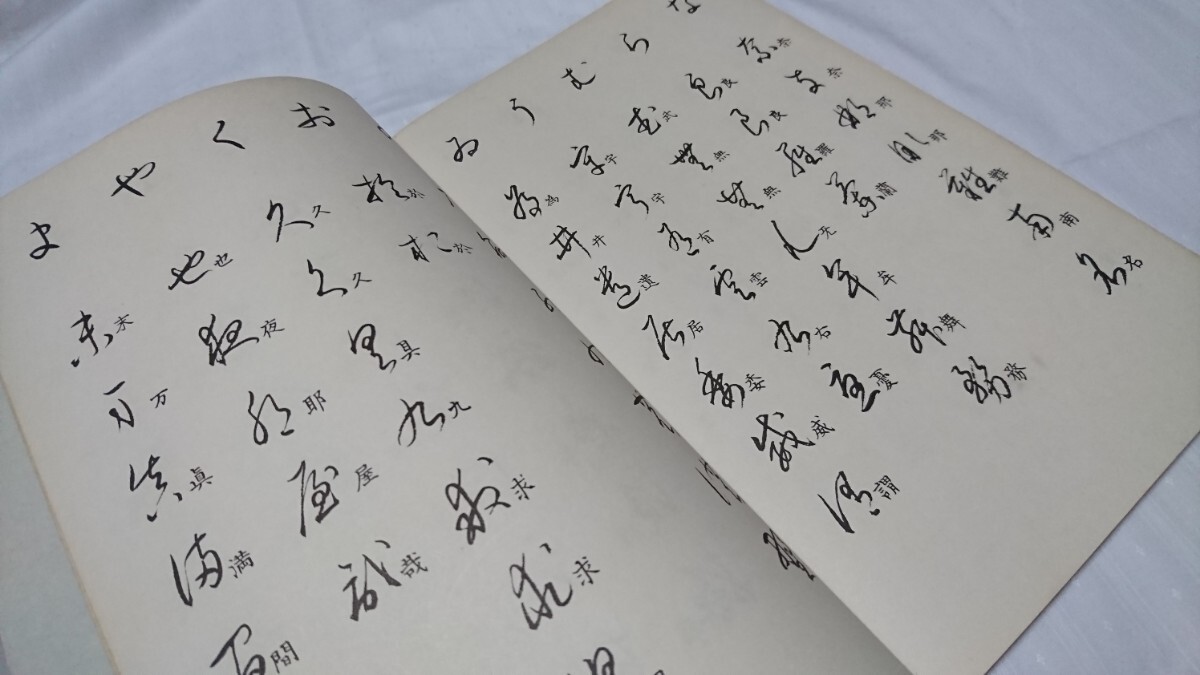 な 奈 奈 那 那 難 南 名
ら 良 良 羅 蘭
む 武 無 無 无 牟 舞 務
う 宇 宇 有 雲 右 憂
ゐ 為 井 遺 居 委 威 謂
お 於 於
く 久 久 具 九 求 求
や 也 夜 耶 屋 哉
ま 末 万 眞 満 間